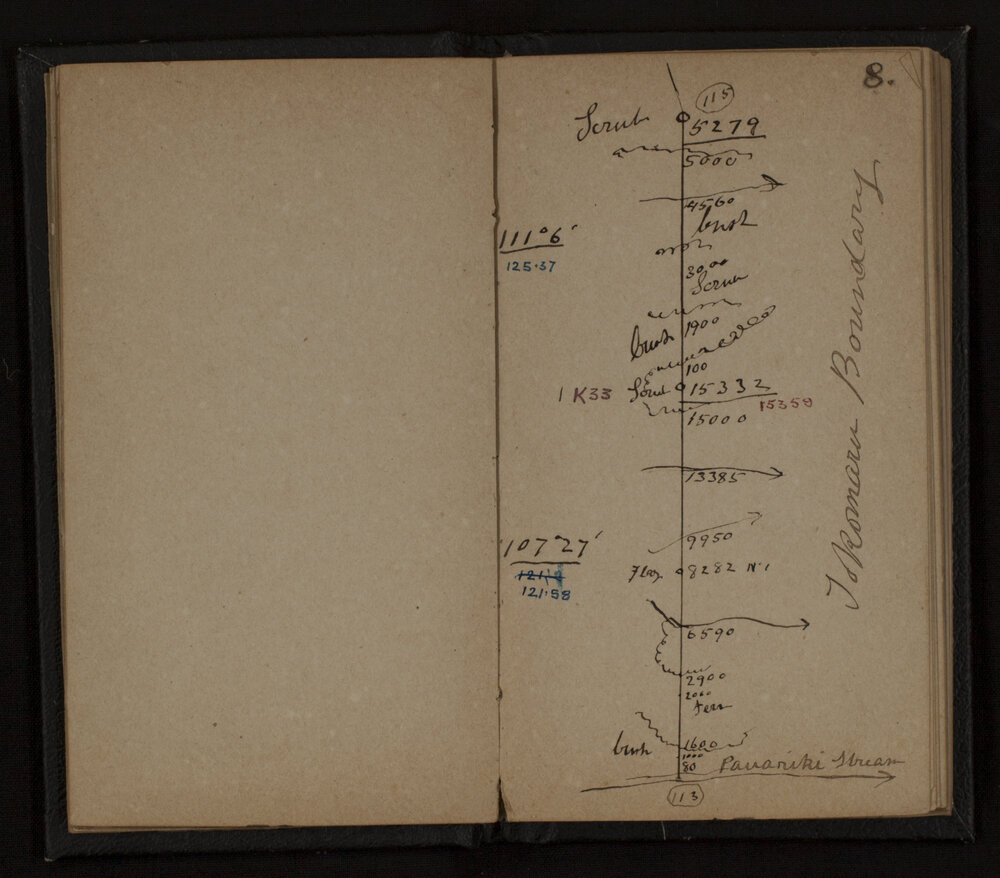 8.
115
Scrub
5279
5000
4560
bush
111°6'
125.37
3000
Scrub
bush 1900
100
1 K33 Scrub 15332
15359
15000
13385
107°27'
121.58
9950
Flag 8282 N.1
6590
2900
2000
Fern
bush 1600
1000
80 Pauariki Stream
113
Tokomaru Boundary